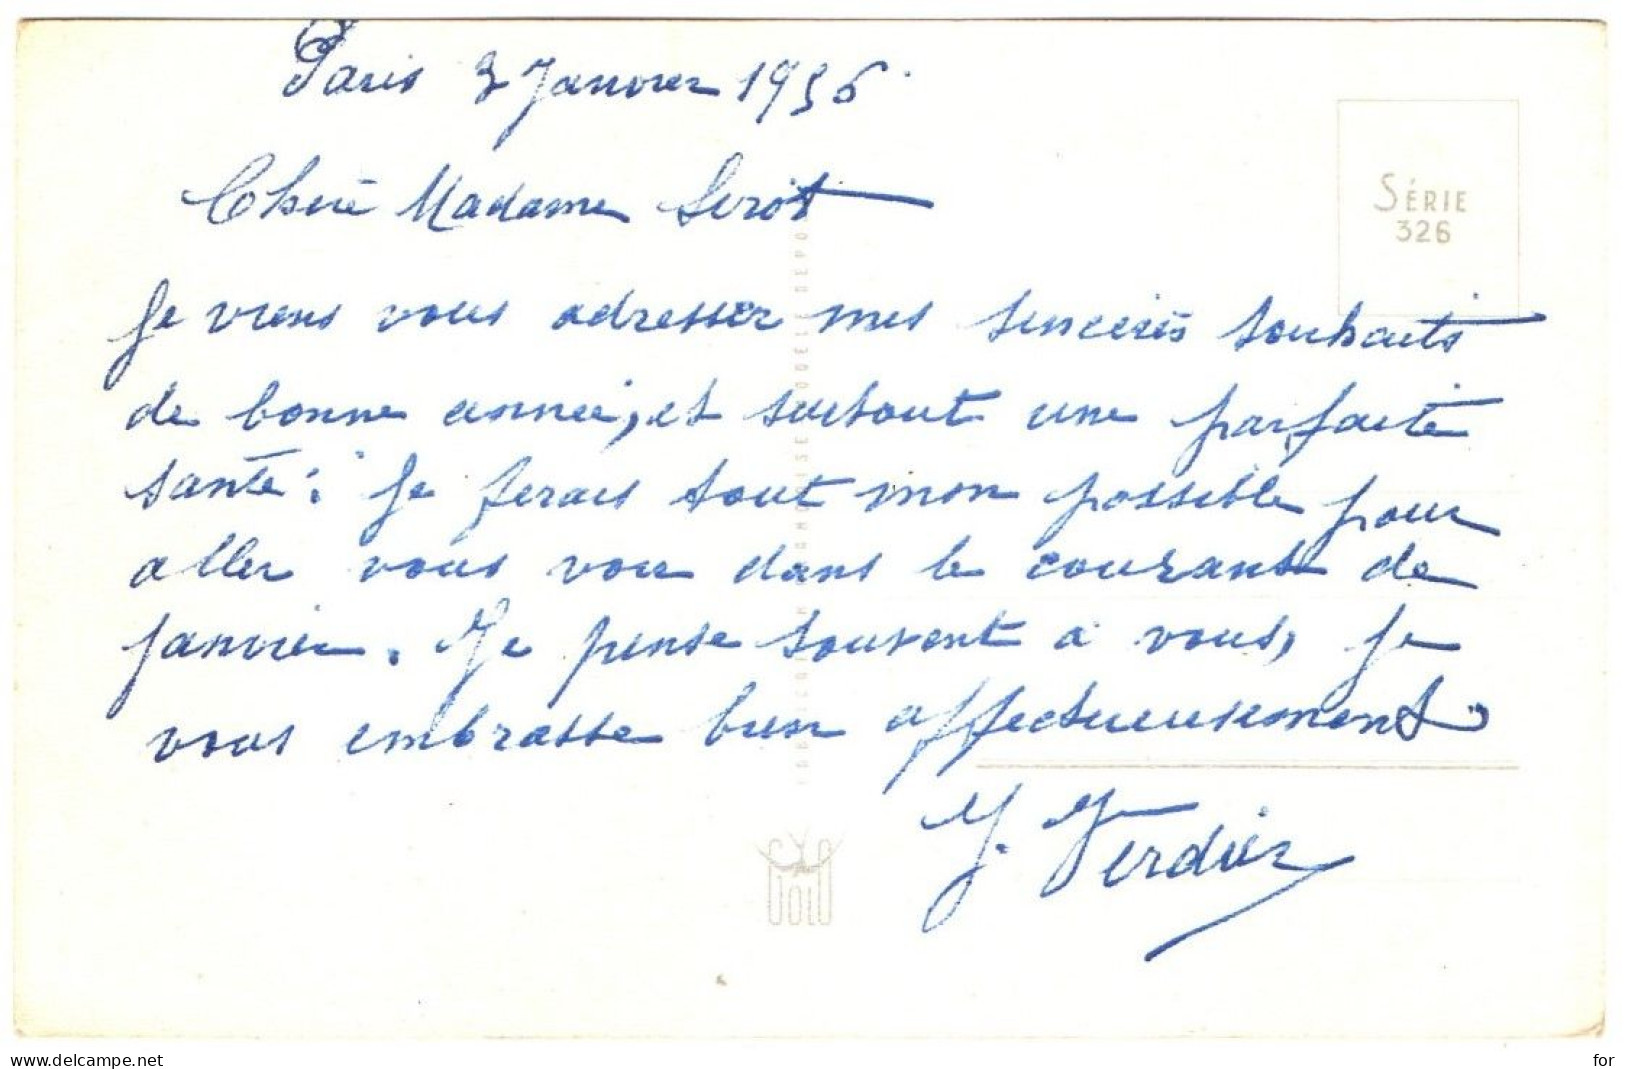 Paris 3 Janvier 1956
Chère Madame Serot
SÉRIE
326
Je viens vous adresser mes sincères souhaits
de bonne année, et surtout une parfaite
santé. Je ferais tout mon possible pour
aller vous voir dans le courant de
Janvier. Je pense souvent à vous, je
vous embrasse bien affectueusement
J. Verdier
www.delcampe.net
for